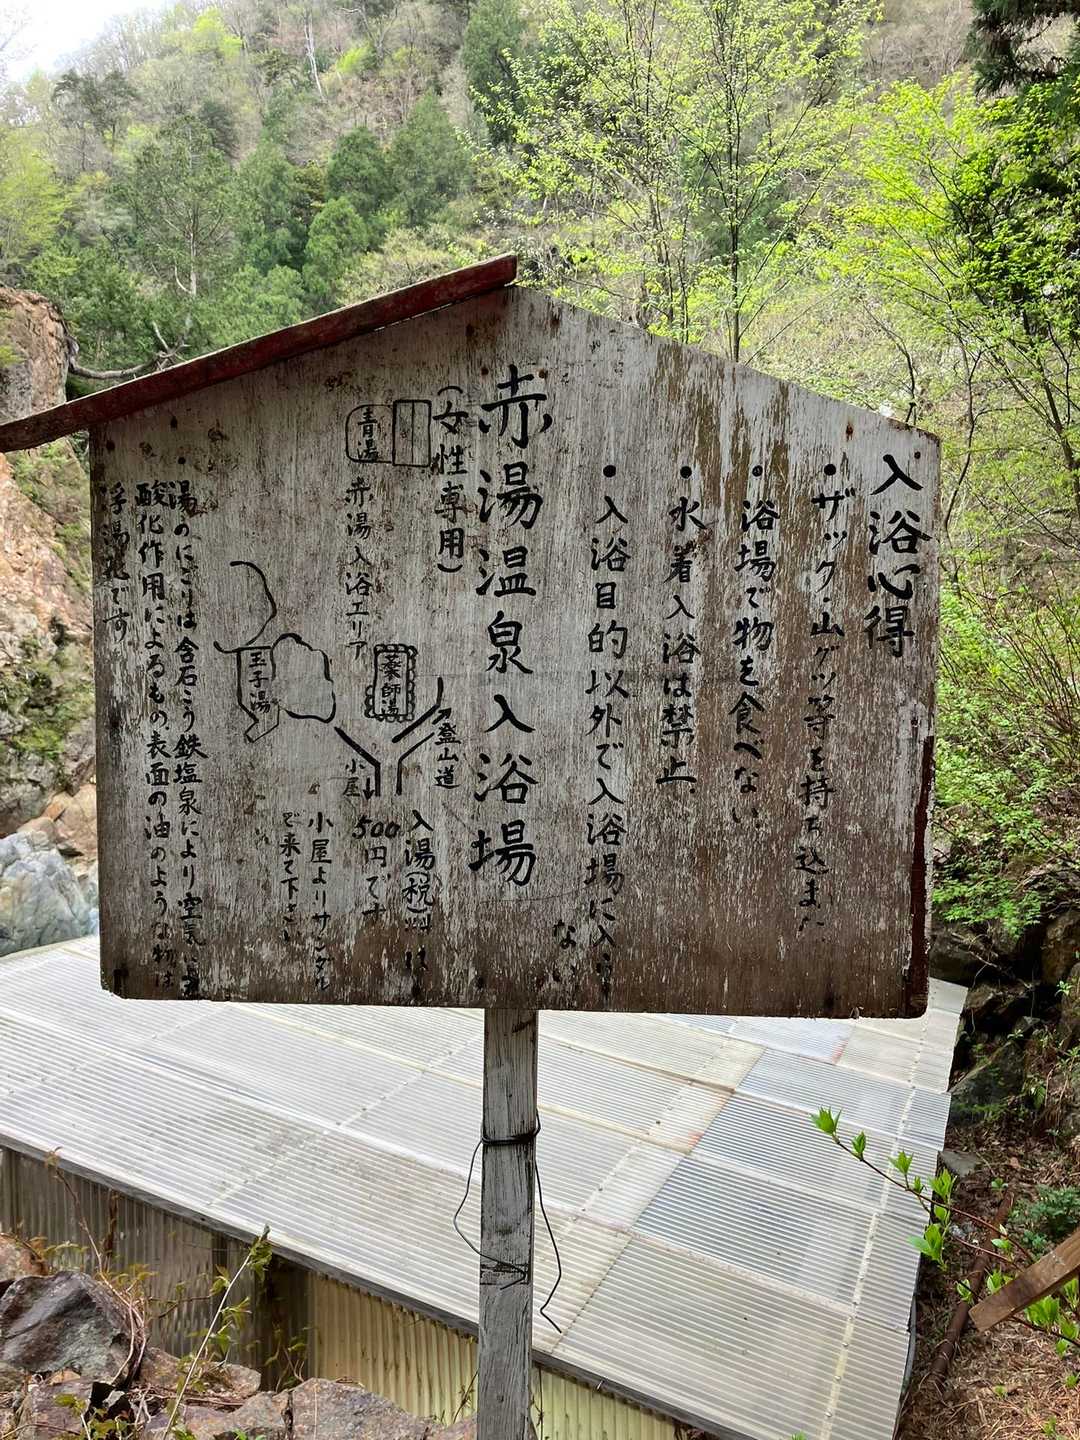 入浴心得
・ザック・山グツ等を持ち込まな
・浴場で物を食べない
・水着入浴は禁止
・入浴目的以外で入浴場に入ら
ない
赤湯温泉入浴場
(女性専用)
青湯
赤湯入浴エリア
薬師湯
玉子湯
登山道
小屋
入湯(税)料は
500円です
小屋よりサンダル
で来て下さい
・湯のにごりは含石こう鉄塩泉により空気に
酸化作用によるもの表面の油のような物は
浮湯花です